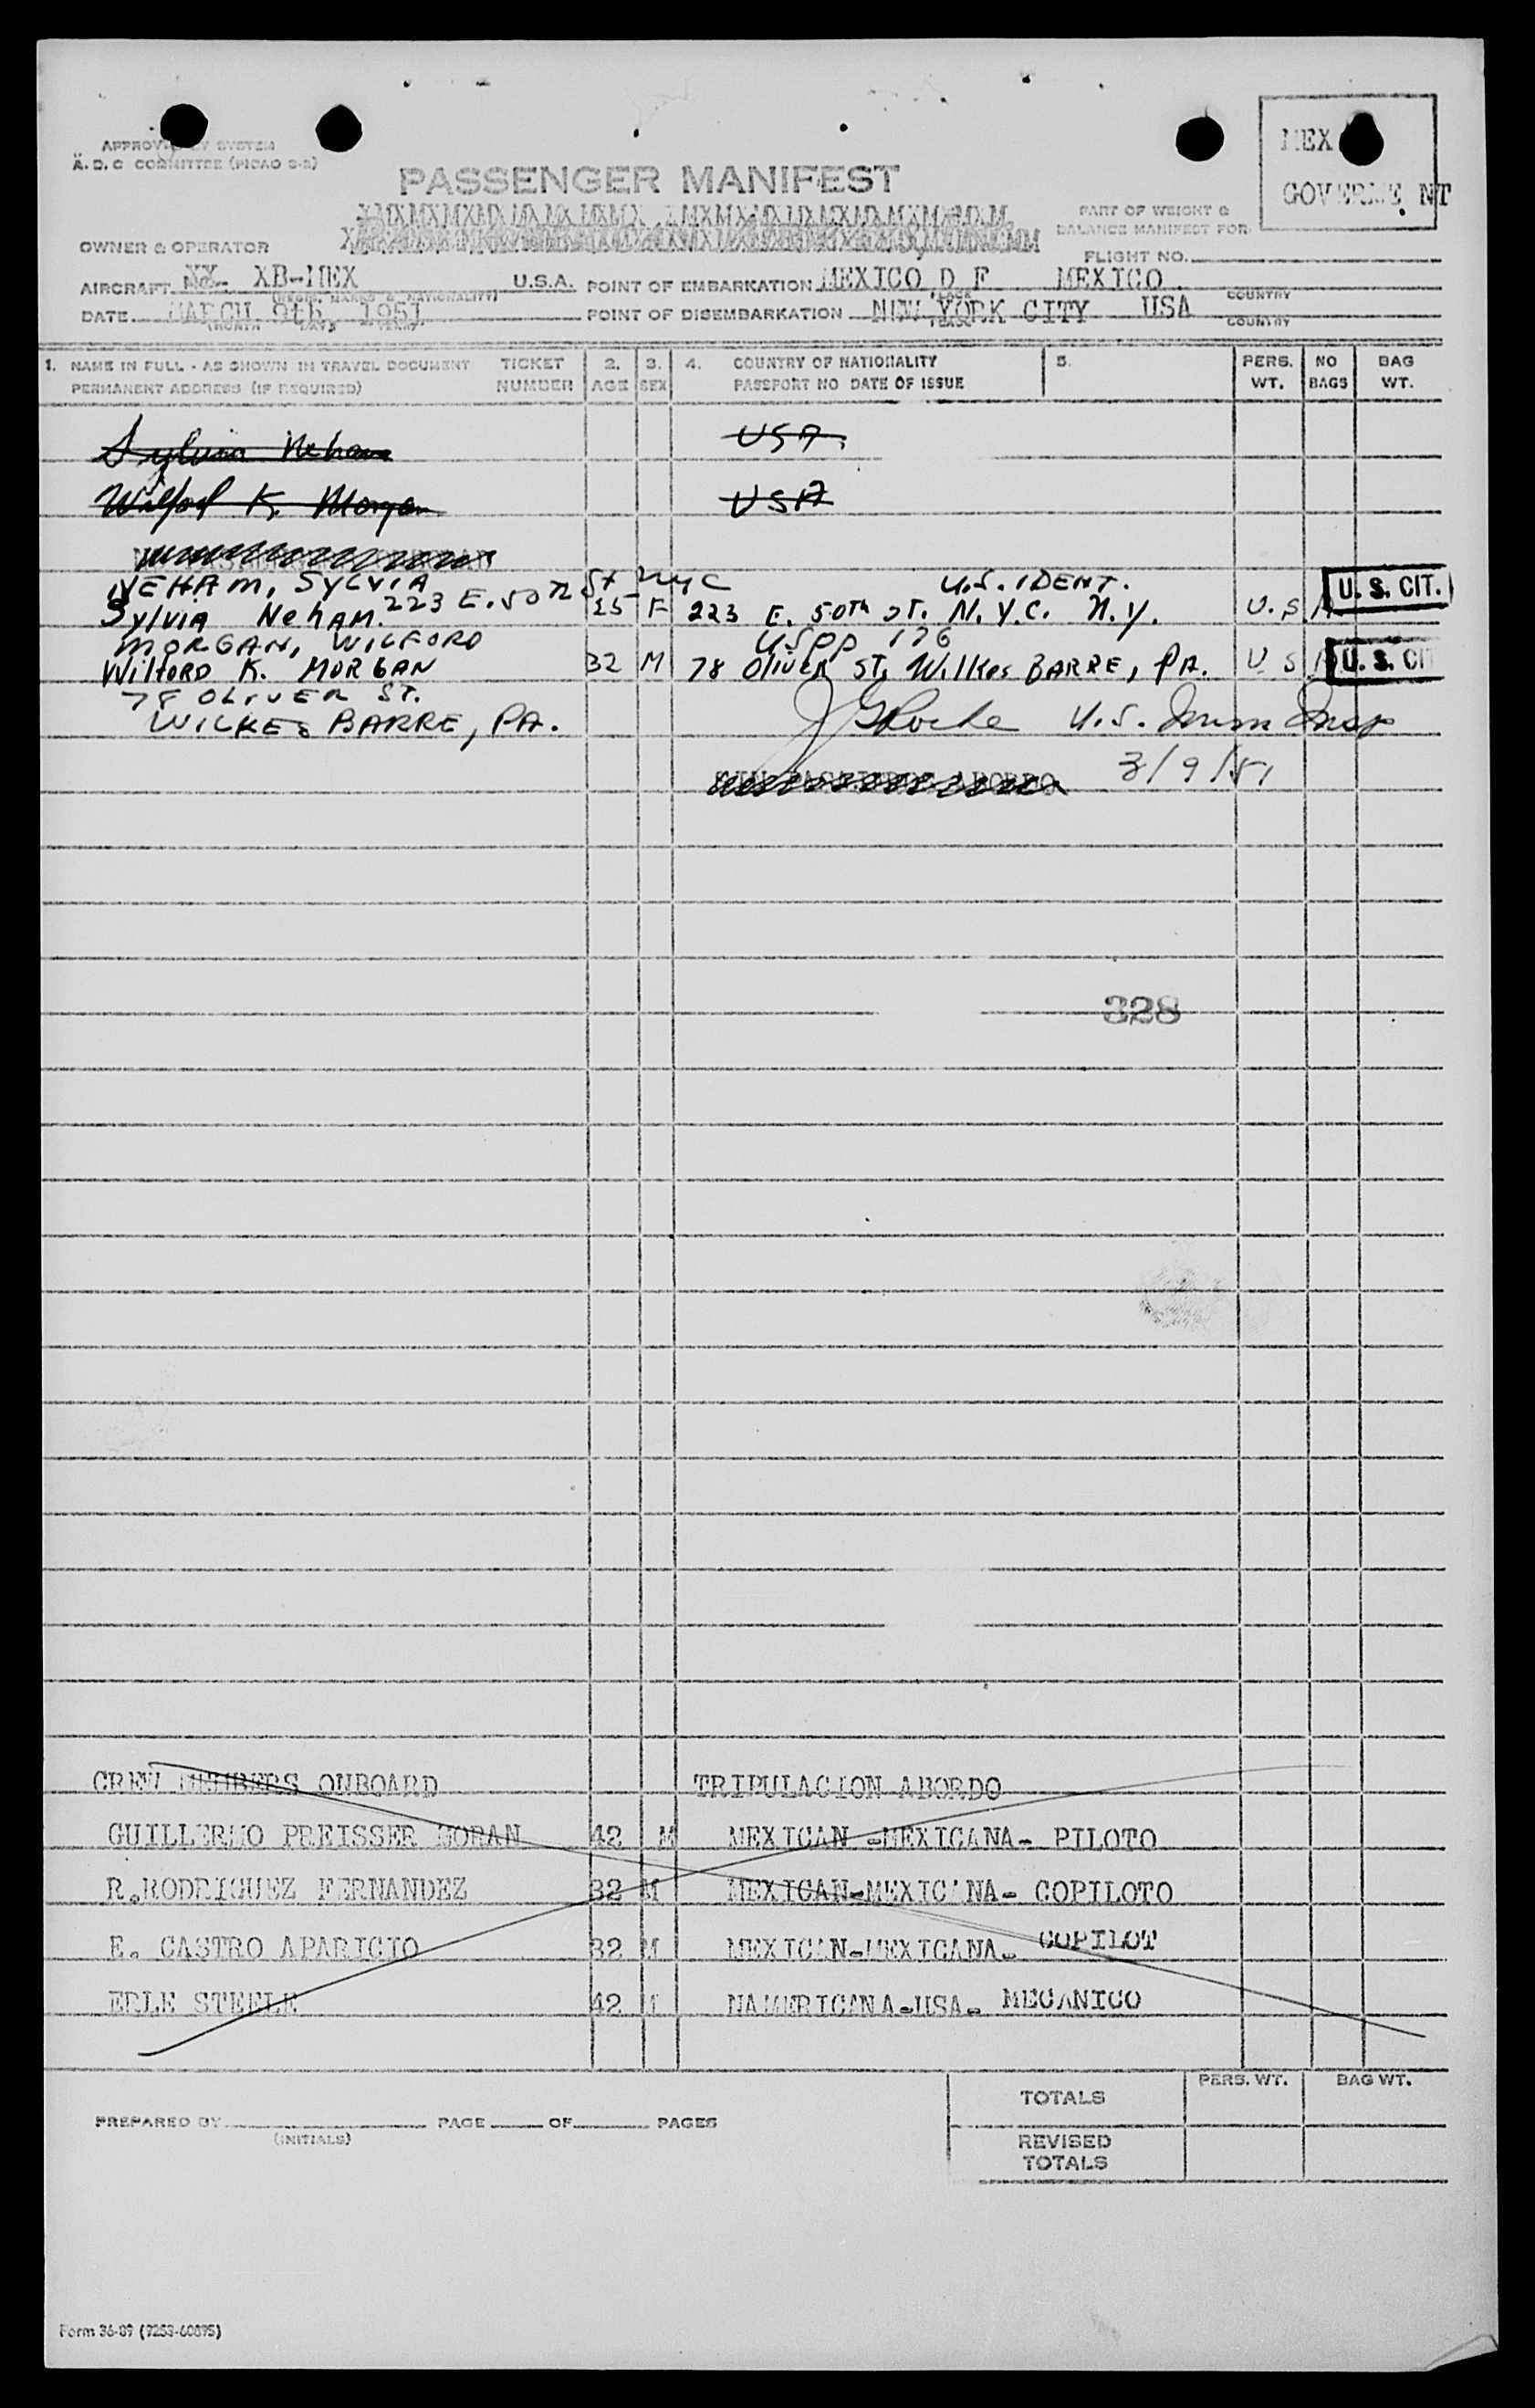 MEX
GOVERNMENT
APPROVED BY SYSTEM
A. D. C COMMITTEE (PICAO 2-2)
PASSENGER MANIFEST
PART OF WEIGHT &
BALANCE MANIFEST FOR
OWNER & OPERATOR
FLIGHT NO.
AIRCRAFT NO. XB-MEX U.S.A. POINT OF EMBARKATION MEXICO D F MEXICO
(REGIS. MARKS & NATIONALITY) PLACE COUNTRY
DATE MARCH 9th 1951 POINT OF DISEMBARKATION NEW YORK CITY USA
(MONTH DAY YEAR) PLACE COUNTRY
1. NAME IN FULL - AS SHOWN IN TRAVEL DOCUMENT TICKET 2. 3. 4. COUNTRY OF NATIONALITY 5. PERS. NO BAG
PERMANENT ADDRESS (IF REQUIRED) NUMBER AGE SEX PASSPORT NO DATE OF ISSUE WT. BAGS WT.
Sylvia Neham USA.
Wilford K. Morgan USA
NEHAM, SYLVIA 223 E. 50TH St NYC U.S. IDENT. U. S. CIT.
Sylvia Neham. 25 F 223 E. 50th ST. N.Y.C. N.Y. U.S.A
MORGAN, WILFORD USPP 176
Wilford K. MORGAN 32 M 78 Oliver ST. Wilkes BARRE, PA. U S A U. S. CIT
78 OLIVER ST.
WILKES BARRE, PA. U.S. Imm Insp
3/9/51
SIN PASAJEROS ABORDO
328
CREW MEMBERS ONBOARD TRIPULACION ABORDO
GUILLERMO PREISSER MORAN 42 M MEXICAN -MEXICANA- PILOTO
R.RODRIGUEZ FERNANDEZ 32 M MEXICAN-MEXICANA- COPILOTO
E. CASTRO APARICIO 32 M MEXICAN-MEXICANA- COPILOT
ERLE STEELE 42 M NAMERICANA-USA- MECANICO
TOTALS PERS. WT. BAG WT.
PREPARED BY PAGE OF PAGES
(INITIALS)
REVISED
TOTALS
Form 36-89 (9253-60895)